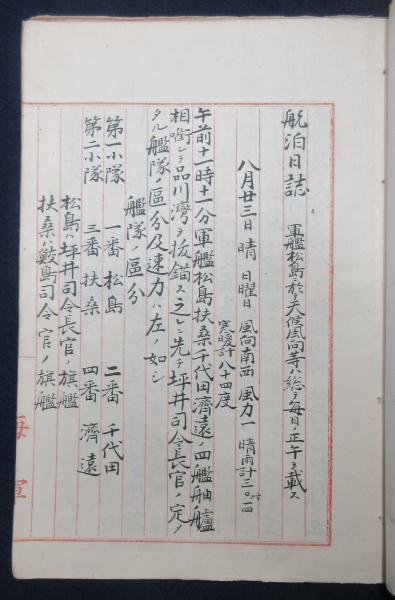 航泊日誌　軍艦松島ニ於テ天候風向等ハ総テ毎日ノ正午ヲ載ス
八月廿三日　晴　日曜日　風向南西　風力一　晴雨計三〇吋一四
寒暖計八十四度
午前十一時十一分軍艦松島扶桑千代田濟遠ノ四艦舳艫
相啣ンテ品川灣ヲ抜錨ス之レニ先チ坪井司令長官ノ定メ
タル艦隊ノ區分及速力ハ左ノ如シ
艦隊ノ區分
第一小隊　一番　松島　二番　千代田
第二小隊　三番　扶桑　四番　濟遠
松島ハ坪井司令長官ノ旗艦
扶桑ハ鮫島司令官ノ旗艦
海軍